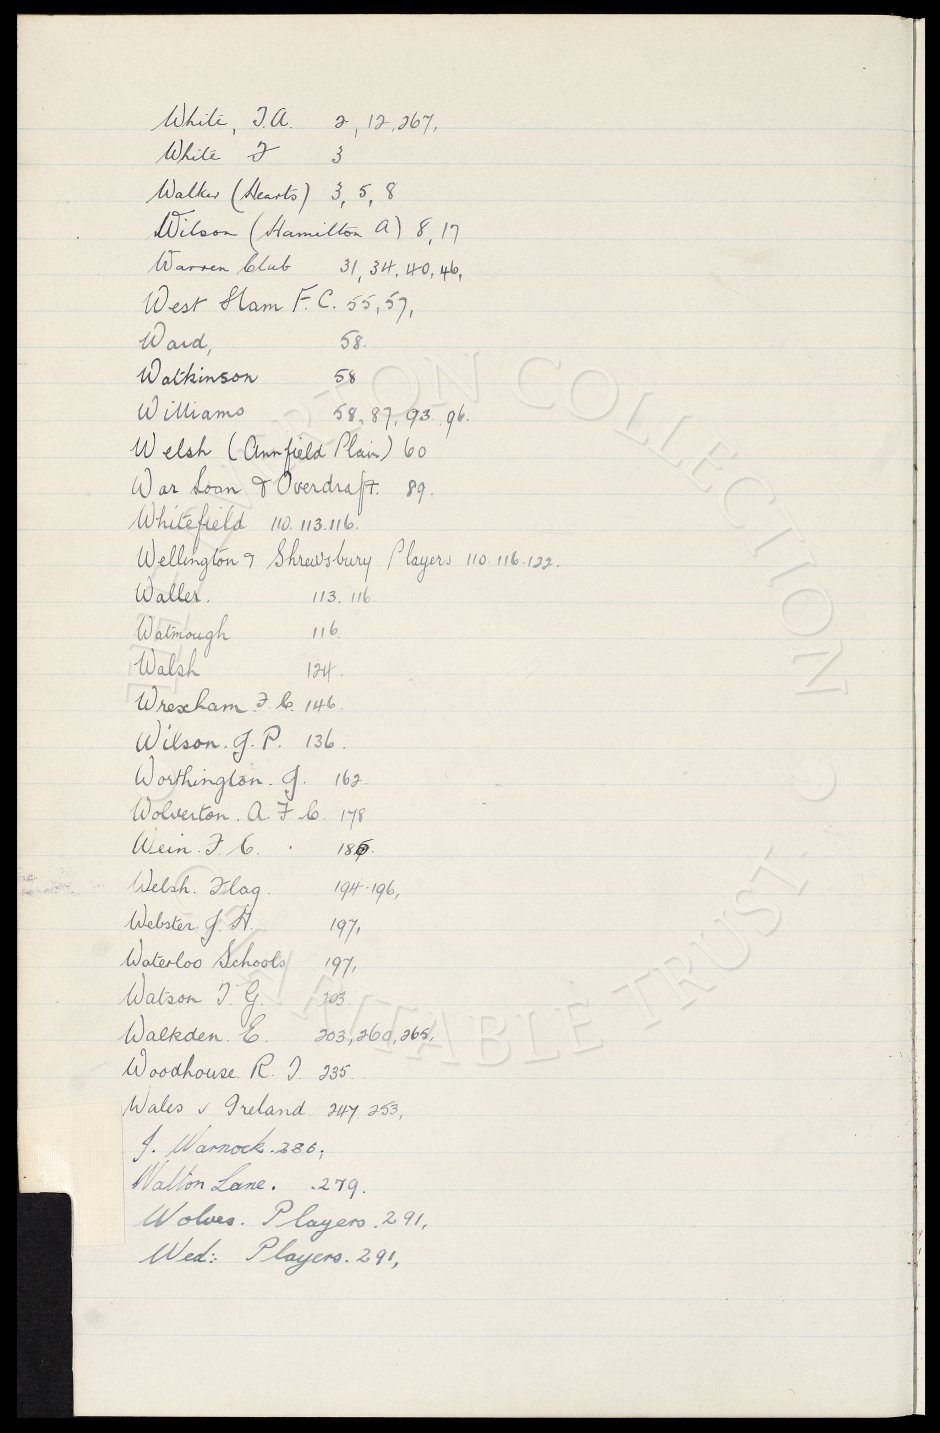 White, T.A. 2, 12, 267,
White T 3
Walker (Hearts) 3, 5, 8
Wilson (Hamilton A) 8, 17
Warren Club 31, 34, 40, 46,
West Ham F.C. 55, 57,
Ward, 58.
Watkinson 58
Williams 58, 87, 93, 96.
Welsh (Annfield Plain) 60
War Loan & Overdraft. 89.
Whitefield 110. 113. 116.
Wellington & Shrewsbury Players 110. 116. 122.
Waller. 113. 116
Watmough 116.
Walsh 124.
Wrexham. F. C. 146.
Wilson. J. P. 136.
Worthington. J. 162.
Wolverton. A. F. C. 178
Wein. F. C.
Welsh. Flag. 194. 196,
Webster. J. H. 197,
Waterloo Schools 197,
Watson T. G. 203.
Walkden. E. 203, 260, 265,
Woodhouse. R. T. 235.
Wales v Ireland. 247. 253,
J. Warnock. 286,
Walton Lane. 279.
Wolves. Players. 291,
Wed: Players. 291,
THE EVERTON COLLECTION • CHARITABLE TRUST •